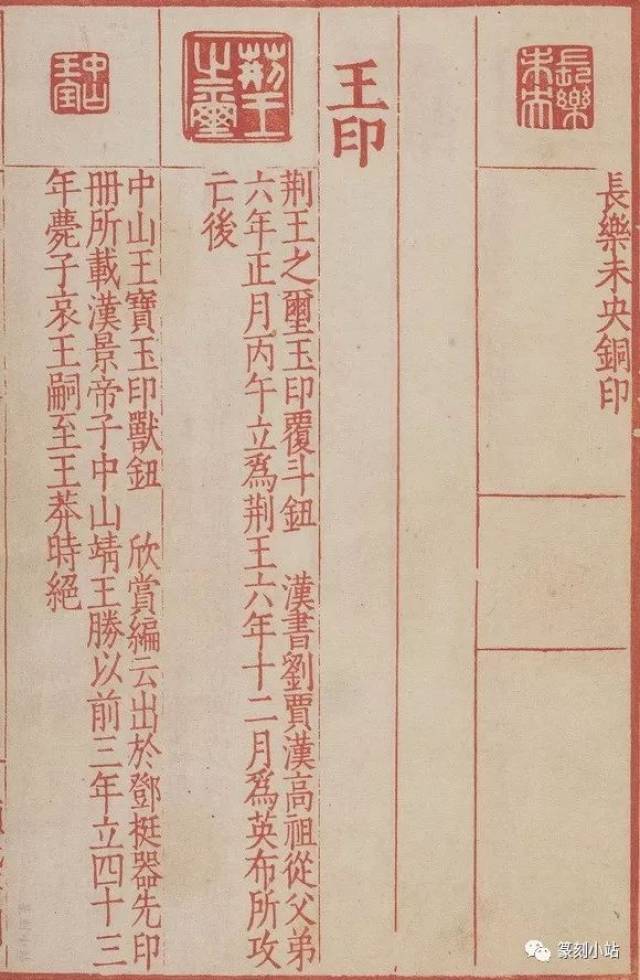 長樂
未央
長樂未央銅印
王印
荊王
之璽
荆王之璽玉印覆斗鈕　漢書劉賈漢高祖從父弟
六年正月丙午立爲荆王六年十二月爲英布所攻
亡後
中山
王寶
中山王寶玉印獸鈕　欣賞編云出於鄧梃器先印
冊所載漢景帝子中山靖王勝以前三年立四十三
年薨子哀王嗣至王莽時絕
篆刻小站